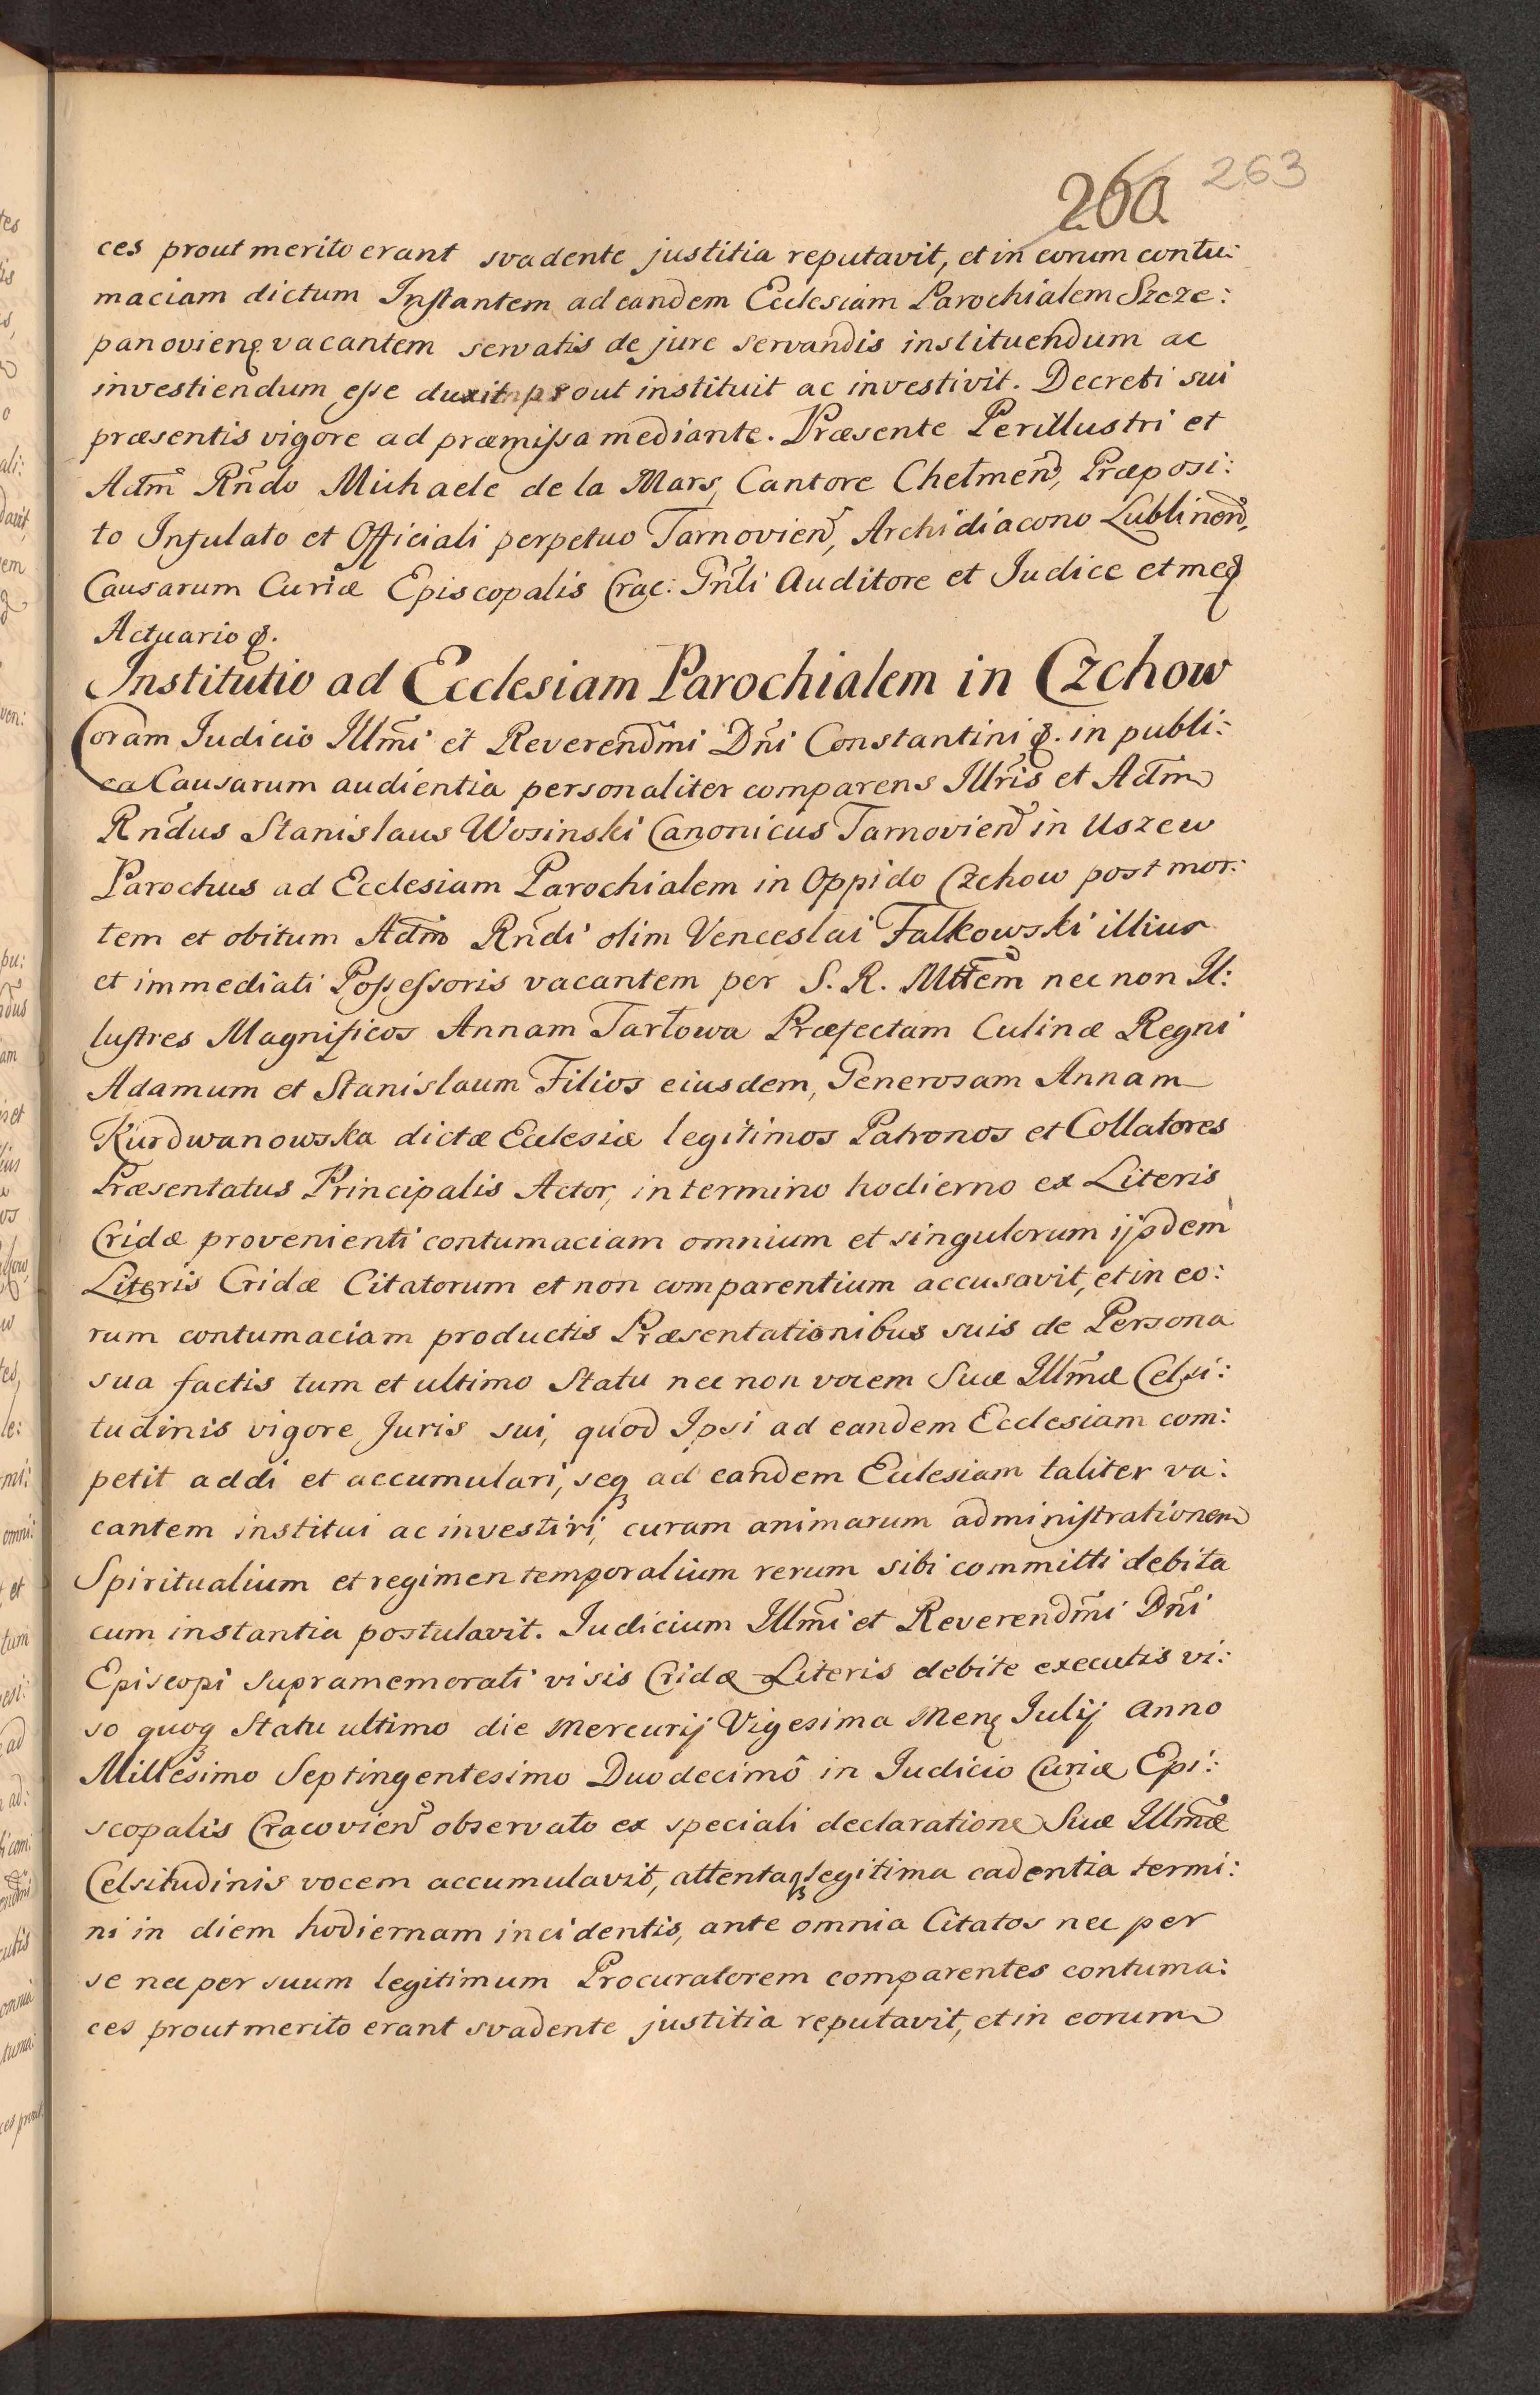 260 263
ces prout merito erant svadente justitia reputavit, et in eorum contu:
maciam dictum Instantem ad eandem Ecclesiam Parochialem Szcze:
panovien vacantem servatis de jure servandis instituendum ac
investiendum esse duxit prout instituit ac investivit. Decreti sui
præsentis vigore ad præmissa mediante. Præsente Perillustri et
Adm̃ Rñdo Michaele de la Mars, Cantore Chełmen, Præposi:
to Infulato et Officiali perpetuo Tarnovien, Archidiacono Lublinen,
Causarum Curiæ Episcopalis Crac: Gñli Auditore et Judice et me
Actuario &.
Institutio ad Ecclesiam Parochialem in Czchow
Coram Judicio Illm̃i et Reverendm̃i Dñi Constantini &. in publi:
ca Causarum audientia personaliter comparens Illris et Adm̃
Rñdus Stanislaus Wosinski Canonicus Tarnovien in Uszew
Parochus ad Ecclesiam Parochialem in Oppido Czchow post mor:
tem et obitum Adm̃ Rñdi olim Venceslai Falkowski illius
et immediati Possessoris vacantem per S. R. Mttem̃ nec non Il:
lustres Magnificos Annam Tarłowa Præfectam Culinæ Regni
Adamum et Stanislaum Filios eiusdem, Generosam Annam
Kurdwanowska dictæ Ecclesiæ legitimos Patronos et Collatores
Præsentatus Principalis Actor, in termino hodierno ex Literis
Cridæ provenienti contumaciam omnium et singulorum ijsdem
Literis Cridæ Citatorum et non comparentium accusavit, et in eo:
rum contumaciam productis Præsentationibus suis de Persona
sua factis tum et ultimo Statu nec non vocem Suæ Illm̃æ Celsi:
tudinis vigore Juris sui, quod Ipsi ad eandem Ecclesiam com:
petit addi et accumulari, seq̨ ad eandem Ecclesiam taliter va:
cantem institui ac investiri, curam animarum administrationem
Spiritualium et regimen temporalium rerum sibi committi debita
cum instantia postulavit. Judicium Illm̃i et Reverendm̃i Dñi
Episcopi supramemorati visis Cridæ Literis debite executis vi:
so quoq̨ Statu ultimo die Mercurij Vigesima Men Julij Anno
Millesimo Septingentesimo Duodecimô in Judicio Curiæ Epi:
scopalis Cracovien observato ex speciali declaratione Suæ Illm̃æ
Celsitudinis vocem accumulavit, attentaq̨ legitima cadentia termi:
ni in diem hodiernam incidentis, ante omnia Citatos nec per
se nec per suum legitimum Procuratorem comparentes contuma:
ces prout merito erant svadente justitia reputavit, et in eorum